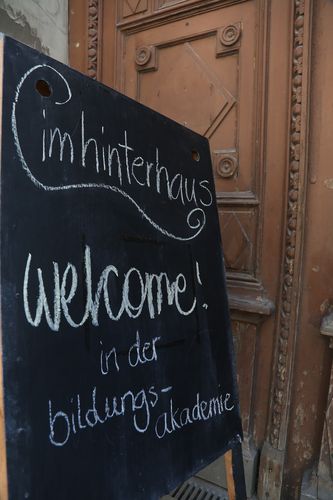 imhinterhaus
welcome!
in der
bildungs-
akademie